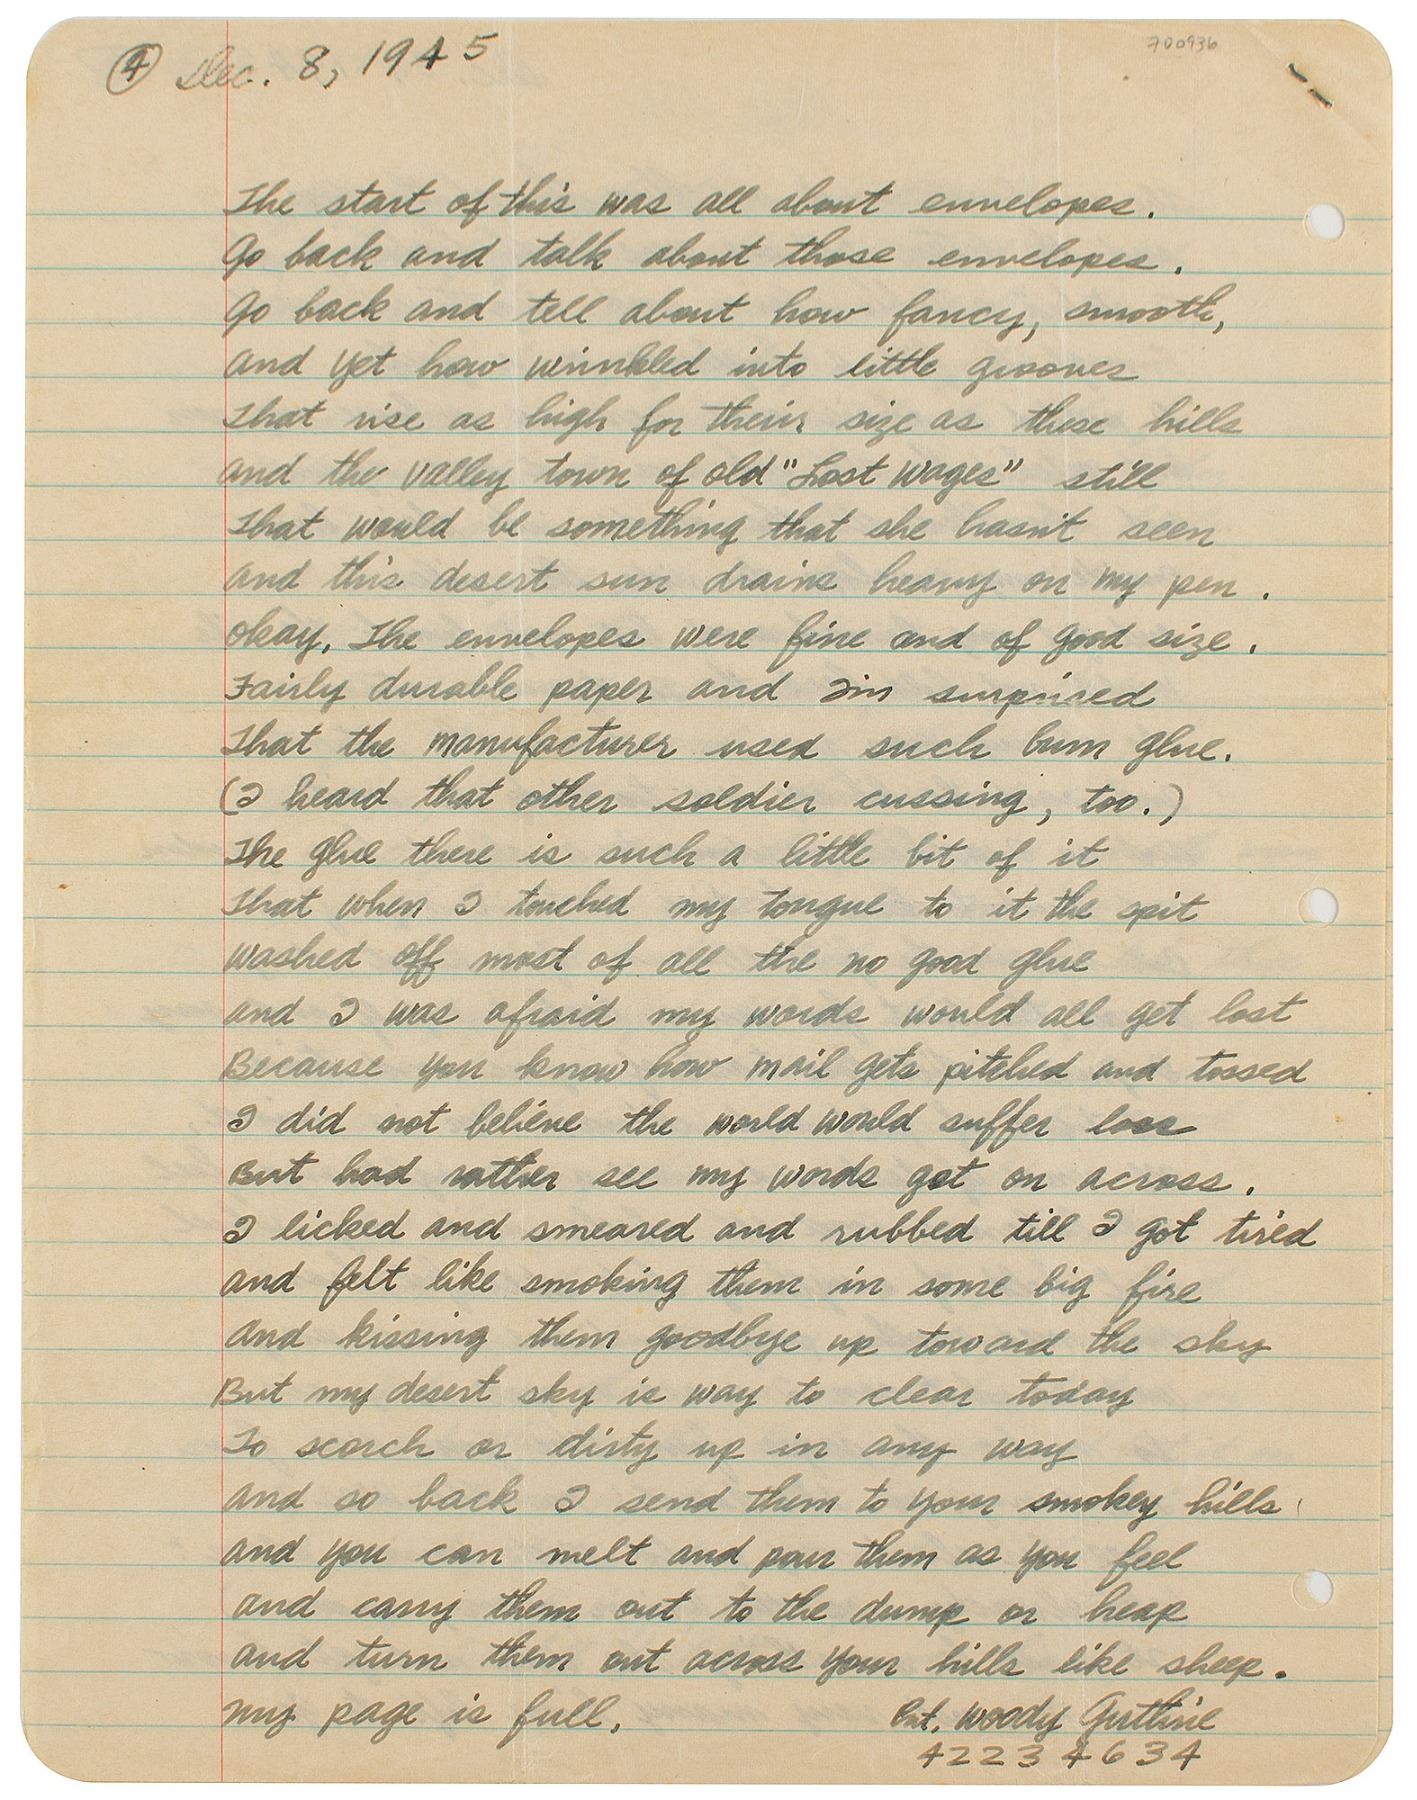 ④ Dec. 8, 1945
700936
The start of this was all about envelopes.
Go back and talk about those envelopes.
Go back and tell about how fancy, smooth,
and yet how wrinkled into little grooves
That rise as high for their size as these hills
and the valley town of old "Lost Wages" still
That would be something that she hasn't seen
and this desert sun drains heavy on my pen.
Okay. The envelopes were fine and of good size.
Fairly durable paper and I'm surprised
That the manufacturer used such bum glue.
(I heard that other soldier cussing, too.)
The glue there is such a little bit of it
That when I touched my tongue to it the spit
washed off most of all the no good glue
and I was afraid my words would all get lost
Because you know how mail gets pitched and tossed
I did not believe the world would suffer loss
But had rather see my words get on across.
I licked and smeared and rubbed till I got tired
and felt like smoking them in some big fire
and kissing them goodbye up toward the sky
But my desert sky is way to clear today
To scorch or dirty up in any way
and so back I send them to your smokey hills
and you can melt and pour them as you feel
and carry them out to the dump or heap
and turn them out across your hills like sheep.
My page is full. Pvt. Woody Guthrie
42234634